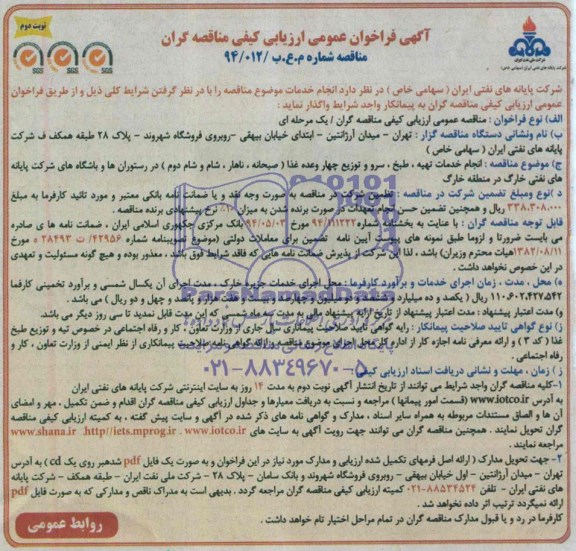 نوبت دوم
آگهی فراخوان عمومی ارزیابی کیفی مناقصه گران
مناقصه شماره م.ع.ب /۹۴/۰۱۲
شرکت پایانه های نفتی ایران ( سهامی خاص ) در نظر دارد انجام خدمات موضوع مناقصه را با در نظر گرفتن شرایط کلی ذیل و از طریق فراخوان
عمومی ارزیابی کیفی مناقصه گران به پیمانکار واجد شرایط واگذار نماید :
الف) نوع فراخوان : مناقصه عمومی ارزیابی کیفی مناقصه گران / یک مرحله ای
ب) نام ونشانی دستگاه مناقصه گزار : تهران - میدان آرژانتین - ابتدای خیابان بیهقی -روبروی فروشگاه شهروند - پلاک ۲۸ طبقه همکف ف شرکت
پایانه های نفتی ایران ( سهامی خاص )
ج) موضوع مناقصه : انجام خدمات تهیه ، طبخ ، سرو و توزیع چهار وعده غذا ( صبحانه ، ناهار ، شام و شام دوم ) در رستوران ها و باشگاه های شرکت پایانه
های نفتی خارگ در منطقه خارگ
د )نوع ومبلغ تضمین شرکت در مناقصه : تضمین شرکت در مناقصه به صورت وجه نقد و یا ضمانت نامه بانکی معتبر و مورد تائید کارفرما به مبلغ
۳۳۸،۳۰۸،۰۰۰ ریال و همچنین تضمین حسن انجام تعهدات در صورت برنده شدن به میزان ۱۰٪ نرخ پیشنهادی برنده مناقصه .
قابل توجه مناقصه گران : با عنایت به بخشنامه شماره مورخ ۹۴/۰۵/۰۳ بانک مرکزی جمهوری اسلامی ایران ، ضمانت نامه ها ی صادره
می بایست ضرورتا و لزوما طبق نمونه های پیوست آیین نامه تضمین برای معاملات دولتی (موضوع تصویبنامه شماره ۴۲۹۵۶/ ت ۲۸۴۹۳ ه مورخ
۱۳۸۲/۰۸/۱۱هیات محترم وزیران) باشد ، لذا این شرکت از پذیرش ضمانت نامه هایی که فاقد شرایط فوق باشد ، معذور بوده و هیچ گونه مسئولیت و تعهدی
در این خصوص نخواهد داشت .
ه) محل ، مدت ، زمان اجرای خدمات و برآورد کارفرما : محل اجرای خدمات جزیره خارک ، مدت اجرای آن یکسال شمسی و برآورد تخمینی کارفما
۱۱۰،۶۰۲،۴۲۷،۵۴۲ ریال ( یکصد و ده میلیارد و ششصد و دو میلیون و چهارصد و بیست و هفت هزار و پانصد و چهل و دو ریال ) می باشد .
و) مدت اعتبار پیشنهاد : مدت اعتبار پیشنهاد از تاریخ ارائه پیشنهاد مالی به مدت سه ماه شمسی که این مدت قابل تمدید تا سی روز دیگر می باشد.
ز) نوع گواهی تایید صلاحیت پیمانکار : رایه گواهی تایید صلاحیت پیمانکاری سال جاری از وزارت تعاون ، کار و رفاه اجتماعی در خصوص تهیه و توزیع طبخ
غذا ( کد ۳ ) و ارائه معرفی نامه اجازه کار از اداره کار محل اجرای موضوع مناقصه و ارائه گواهی نامه صلاحیت پیمانکاری از نظر ایمنی از وزارت تعاون ، کار و
رفاه اجتماعی .
ز ) زمان ، مهلت و نشانی دریافت اسناد ارزیابی کیفی
۱-کلیه مناقصه گران واجد شرایط می توانند از تاریخ انتشار آگهی نوبت دوم به مدت ۱۴ روز به سایت اینترنتی شرکت پایانه های نفتی ایران
به آدرس www.iotco.ir (قسمت امور پیمانها ) مراجعه و نسبت به دریافت معیارها و جداول ارزیابی کیفی مناقصه گران اقدام و ضمن تکمیل ، مهر و امضای
آن ها و الصاق مستندات مربوطه به همراه سایر اسناد ، مدارک و گواهی نامه های ذکر شده در آگهی و سایت پیش گفته ، به کمیته ارزیابی کیفی مناقصه
گران تحویل نمایند . همچنین مناقصه گران می توانند جهت رویت آگهی به سایت های www.shana.ir .http//iets.mprog.ir . www.iotco.ir
مراجعه نمایند .
۲- جهت تحویل مدارک ( ارائه اصل فرمهای تکمیل شده ارزیابی و مدارک مورد نیاز در این فراخوان و به صورت یک فایل pdf شدهبر روی یک cd) به آدرس
تهران - میدان آرژانتین - اول خیابان بیهقی - روبروی فروشگاه شهروند و بانک سامان - پلاک ۲۸ - شرکت ملی نفت ایران - طبقه همکف - شرکت پایانه
های نفتی ایران - تلفن ۸۸۵۳۴۵۲۴-۰۲۱ کمیته ارزیابی کیفی مناقصه گران مراجعه گردد . بدیهی است به مدراک ناقص و مدارکی که به صورت فایل pdf
ارائه نمیگردد ترتیب اثر داده نخواهد شد .
کارفرما در رد و یا قبول مدارک مناقصه گران در تمام مراحل اختیار تام خواهد داشت .
روابط عمومی
ParsNamadData
۰۲۱-۸۸۳۴۹۶۷۰-۵